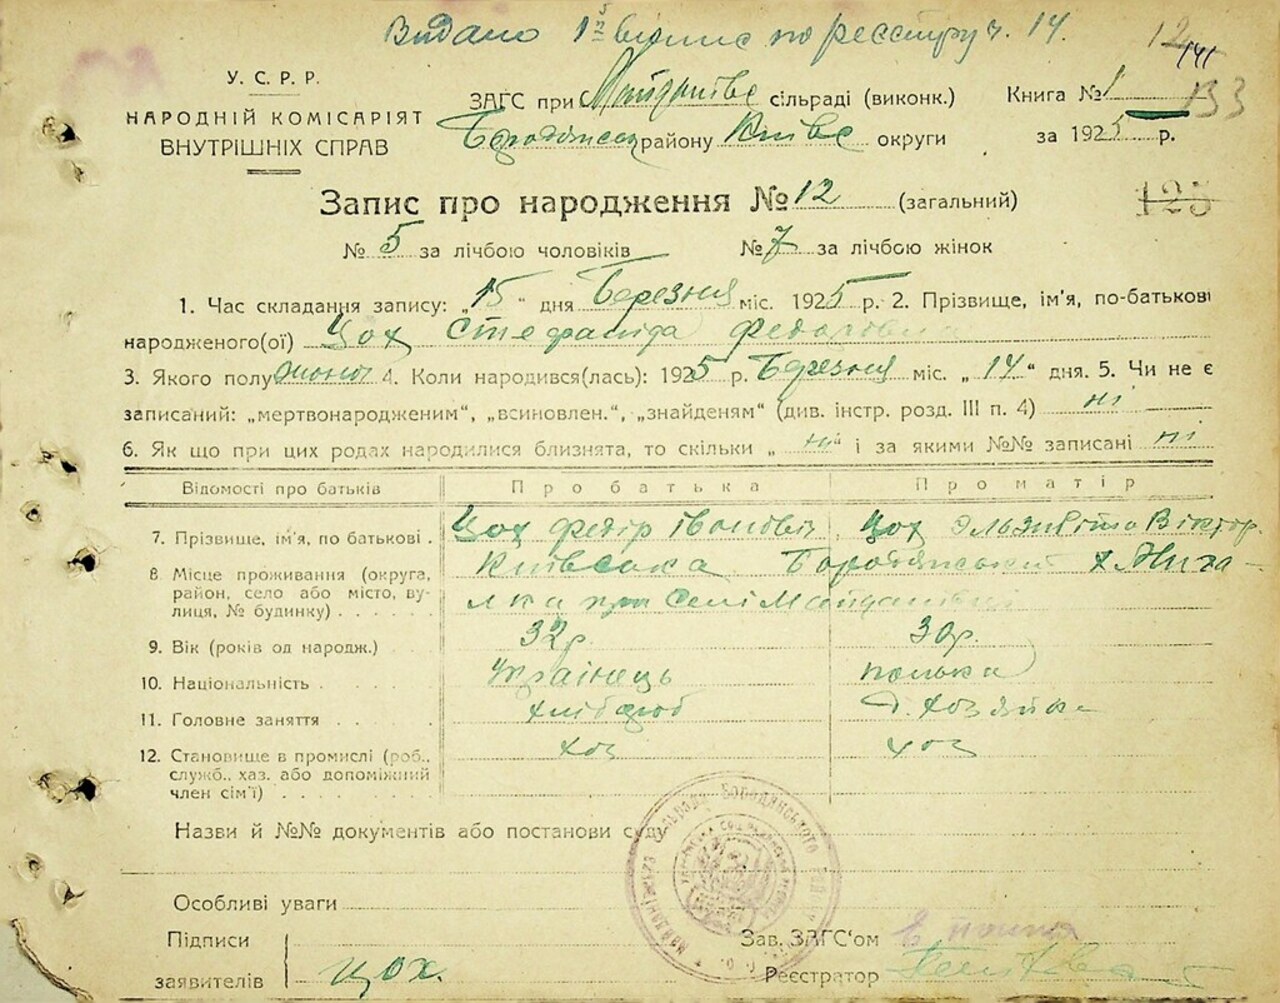 Видано 1й випис по реєстру ч. 14.
12
141
133
У. С. Р. Р.
НАРОДНІЙ КОМІСАРІЯТ
ВНУТРІШНІХ СПРАВ
ЗАГС при сільраді (виконк.)
району Київс округи
Книга № 1
за 1925 р.
125
Запис про народження № 12 (загальний)
№ 5 за лічбою чоловіків № 7 за лічбою жінок
1. Час складання запису: „15" дня Березня міс. 1925 р. 2. Прізвище, ім'я, по-батькові
народженого(ої) Цох Стефанида Федоровна
3. Якого полу жіноч 4. Коли народився(лась): 1925 р. Березня міс. „14" дня. 5. Чи не є
записаний: „мертвонародженим", „всиновлен.", „знайденям" (див. інстр. розд. III п. 4) ні
6. Як що при цих родах народилися близнята, то скільки „ні" і за якими №№ записані ні
Відомості про батьків Про батька Про матір
7. Прізвище, ім'я, по батькові . Цох Федір Івонович Цох Эльзивіта Віктор.
8 Місце проживання (округа, район, село або місто, вулиця, № будинку) . . . . Київська Бородянський х.
при Селі
9. Вік (років од народж.) 32р. 30р.
10. Національність . . . . Українець полька
11. Головне заняття . . . . хлібороб д. хозяйка
12. Становище в промислі (роб., служб., хаз. або допоміжний член сім'ї) . . . . . хоз хоз
Назви й №№ документів або постанови суду
Особливі уваги
Підписи
заявителів цох.
Зав. ЗАГС'ом
Реєстратор